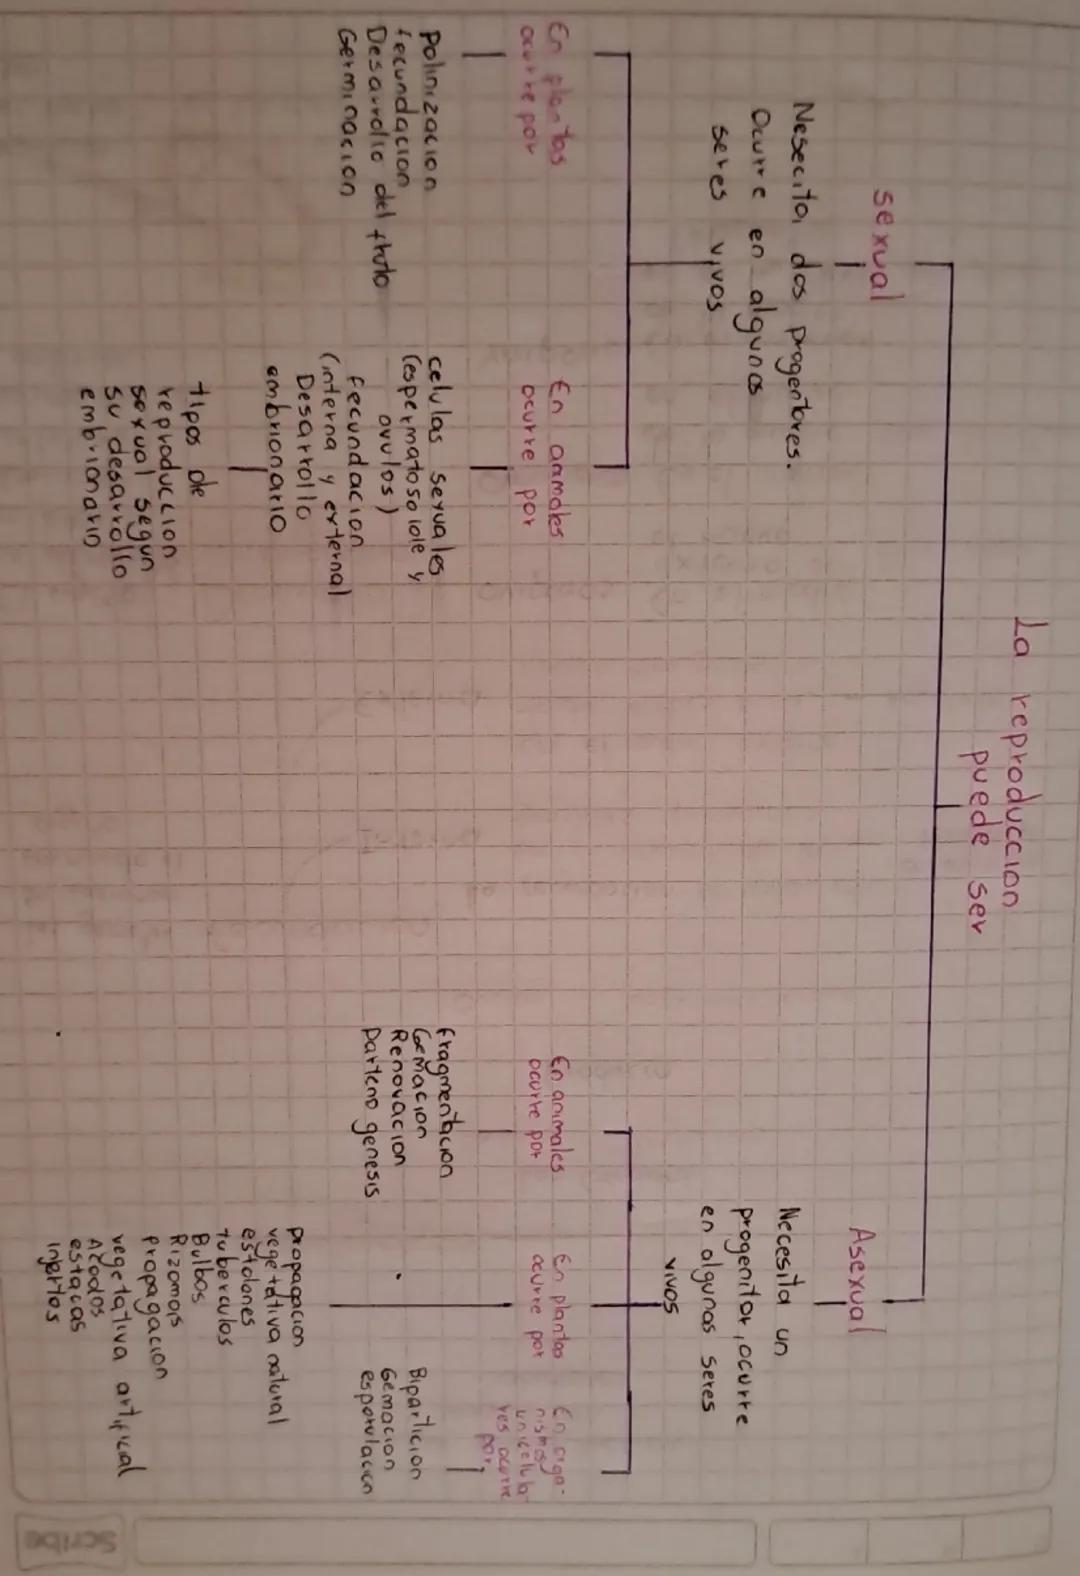 La reproduccion
puede ser
sexual
Nesecita dos progenitores.
Ocurre en algunos
seres vivos
En plantas
ocurre por
Polinizacion
fecundacion
Desarrollo del fruto
Germinacion
En animales
ocurre por
celulas sexuales
(espermatosoide y
ovulos)
fecundacion
(interna y externa)
Desarrollo
embrionario
tipos de
reproduccion
sexual segun
su desarrollo
embrionario
Asexual
Necesita un
progenitor, ocurre
en algunos seres
vivos
En animales
ocurre por
fragmentacion
Gemacion
Renovacion
Parteno genesis
En plantas
ocurre por
propagacion
vegetativa natural
estolones
tuberculos
Bulbos
Rizomas
propagacion
vegetativa artificial
Acodos
estacas
injertos
En orga-
nismos
unicelula-
res ocurre
por,
Biparticion
Gemacion
esporulacion
Scribe